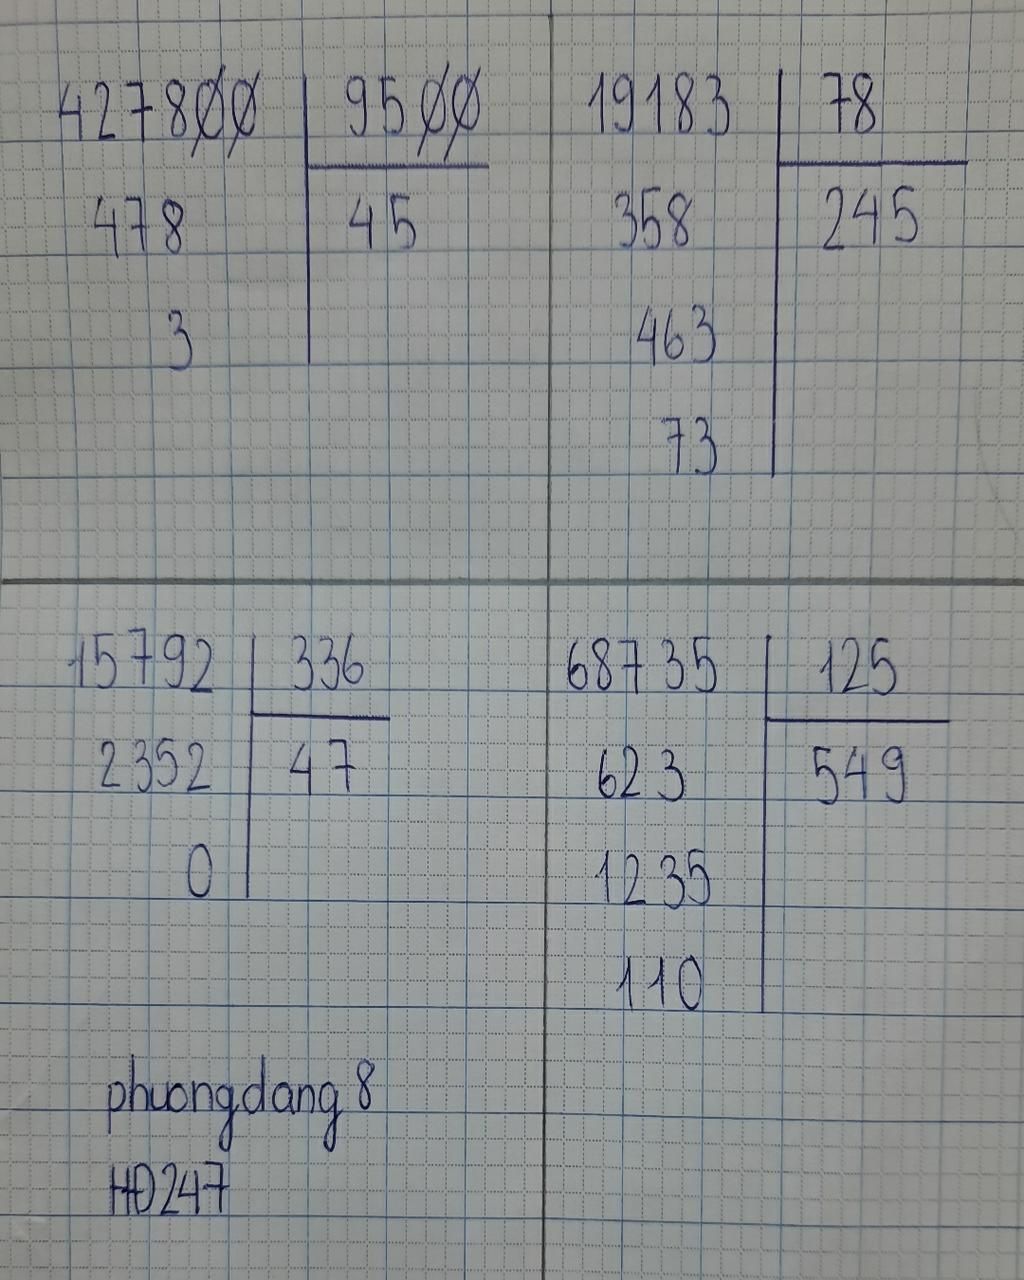 427800 9500
478 45
3
19183 78
358 245
463
73
15792 336
2352 47
0
68735 125
623 549
1235
110
phuongdang8
HĐ247